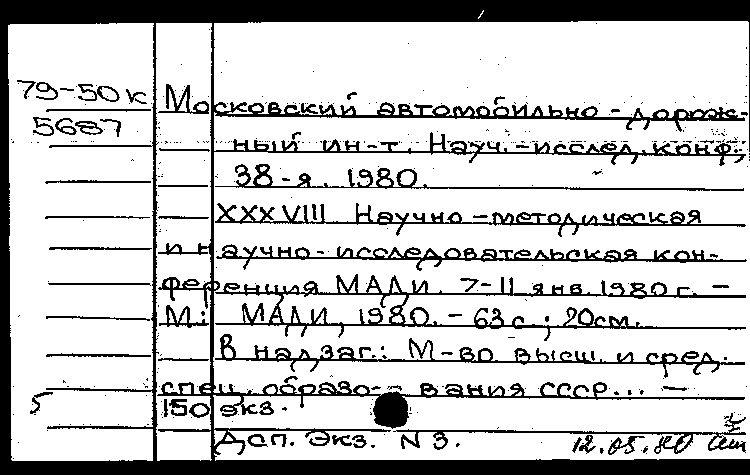 79-50к Московский автомобильно-дорож-
5687 ный ин-т. Науч.-исслед. конф.,
38-я. 1980.
XXXVIII Научно-методическая
и научно-исследовательская кон-
ференция МАДИ. 7-11 янв. 1980 г. –
М.: МАДИ, 1980. – 63 с.; 20см.
В надзаг.: М-во высш. и сред.
спец. образо- вания СССР... –
5 150 экз.
Доп. Экз. N 3. 12.05.80